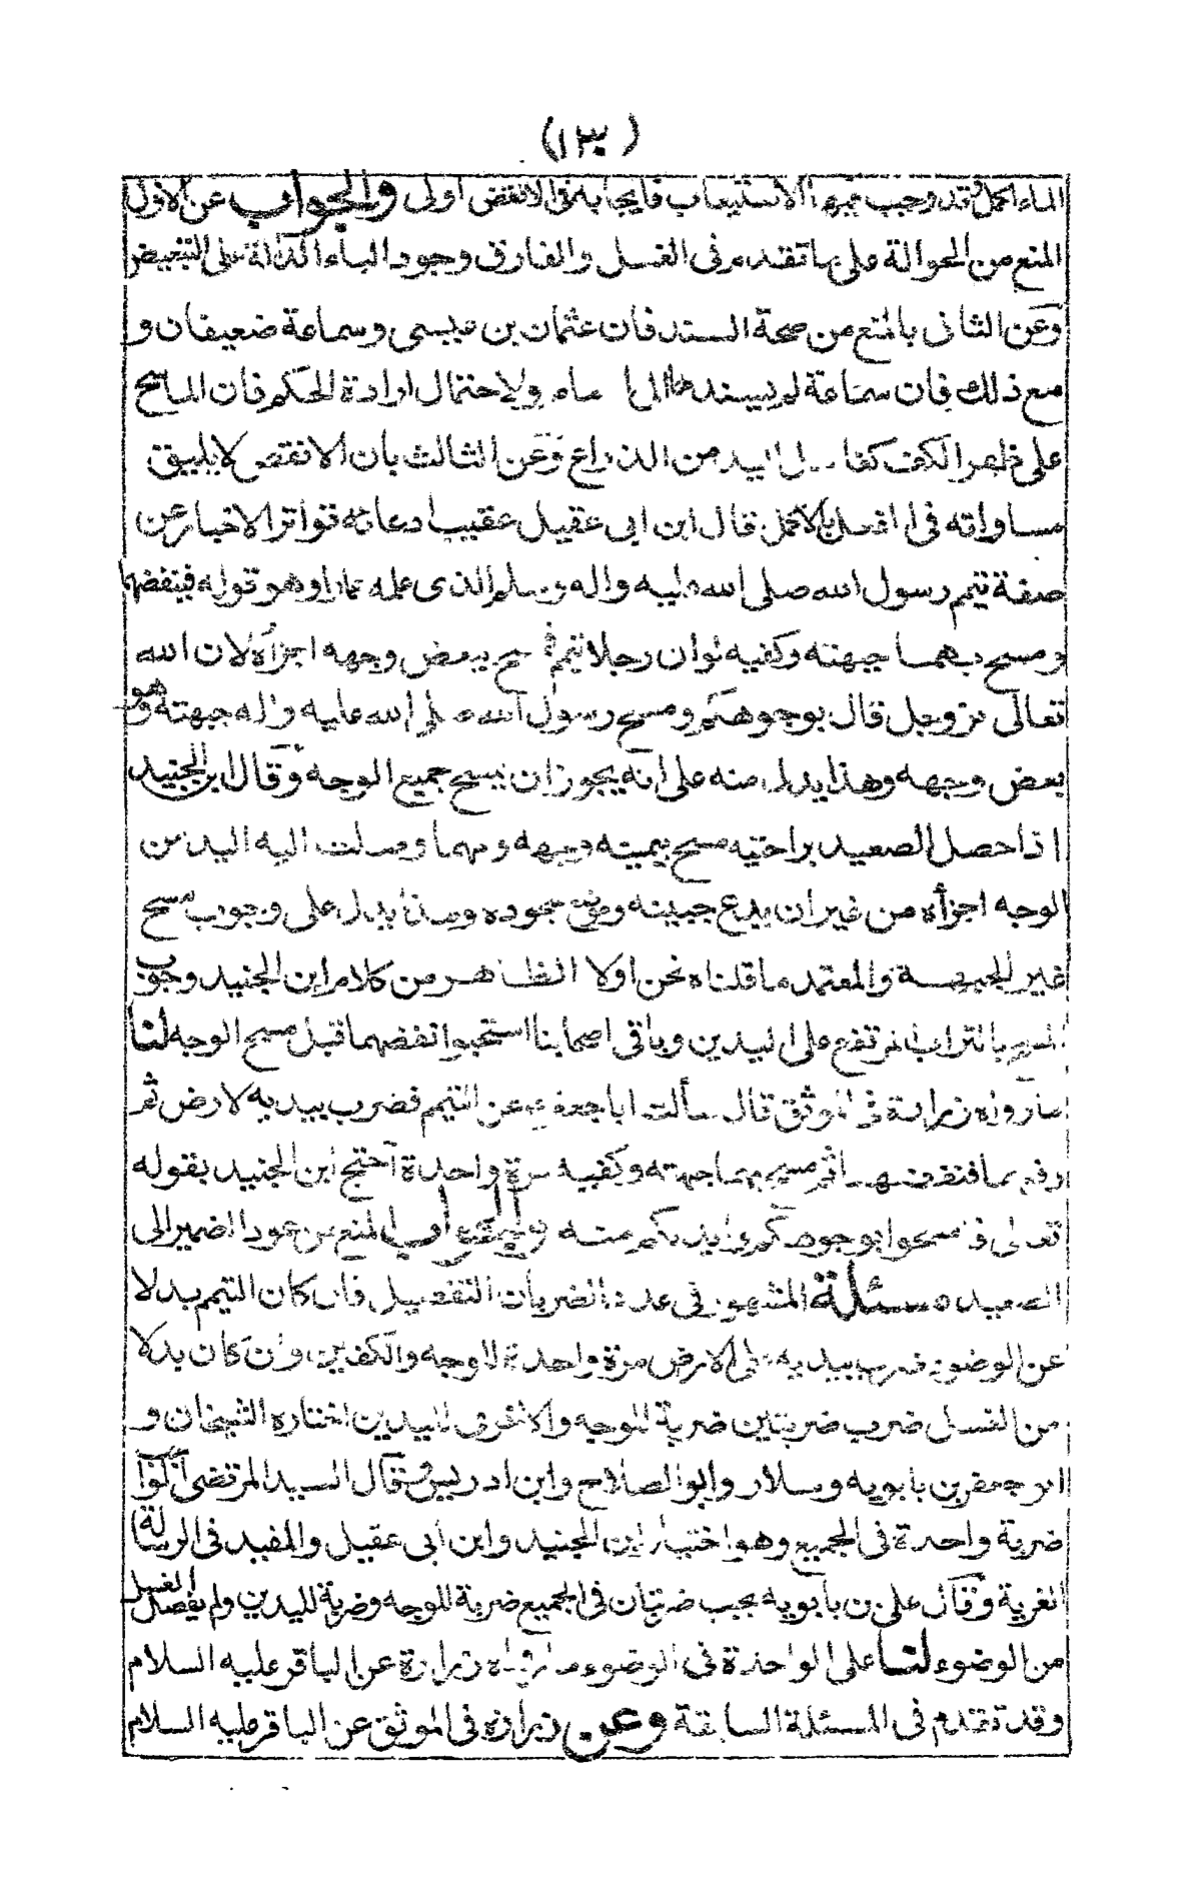 (١٣٠)
الماء اكمل فقد وجب فيه الاستيعاب فايجابه فى الانقص اولى والجواب عن الاول
المنع من الحوالة على ما تقدم فى الغسل والفارق وجود الباء الدالة على التبعيض
وعن الثانى بالمنع من صحة السند فان عثمان بن عيسى وسماعة ضعيفان و
مع ذلك فان سماعة لم يسندها الى امام ولاحتمال ارادة الحكم فان الماسح
على ظهر الكف كغاسل اليد من الذراع وعن الثالث بان الانقص لا يليق
مساواته فى الفعل بالاكمل قال ابن ابى عقيل عقيب ادعائه تواتر الاخبار عن
صفة تيمم رسول الله صلى الله عليه واله وسلم الذى علمه عمارا وهو قوله فينفضهما
ومسح بهما جبهته وكفيه لو ان رجلا تيمم فمسح ببعض وجهه اجزأه لان الله
تعالى عز وجل قال بوجوهكم ومسح رسول الله صلى الله عليه واله جبهته وهو
بعض وجهه وهذا يدل منه على انه يجوز ان يمسح جميع الوجه وقال ابن الجنيد
اذا حصل الصعيد براحتيه مسح بيمينه وجهه ومهما وصلت اليه اليد من
الوجه اجزأه من غير ان يدع جبينه وموضع سجوده وهذا يدل على وجوب مسح
غير الجبهة والمعتمد ما قلناه نحن اولا الظاهر من كلام ابن الجنيد وجوب
المسح بالتراب المرتفع على اليدين وباقى اصحابنا استحبوا نفضهما قبل مسح الوجه لنا
ما رواه زرارة فى الموثق قال سألت ابا جعفر ع عن التيمم فضرب بيديه لارض ثم
رفعهما فنفضهما ثم مسح بهما جبهته وكفيه مرة واحدة احتج ابن الجنيد بقوله
تعالى فامسحوا بوجوهكم وايديكم منه والجواب المنع من عود الضمير الى
الصعيد ه مسئلة المشهور فى عدد الضربات التفصيل فان كان التيمم بدلا
عن الوضوء ضرب بيديه على الارض مرة واحدة للوجه والكفين وان كان بدلا
من الغسل ضرب ضربتين ضربة للوجه والاخرى لليدين اختاره الشيخان و
ابو جعفر بن بابويه وسلار وابو الصلاح وابن ادريس وقال السيد المرتضى
ضربة واحدة فى الجميع وهو اختيار ابن الجنيد وابن ابى عقيل والمفيد فى الرسالة
الغرية وقال على بن بابويه يجب ضربتان فى الجميع ضربة للوجه وضربة لليدين ولم يفصل الغسل
من الوضوء لنا على الواحدة فى الوضوء ما رواه زرارة عن الباقر عليه السلام
وقد تقدم فى المسئلة السابقة وعن زرارة فى الموثق عن الباقر عليه السلام